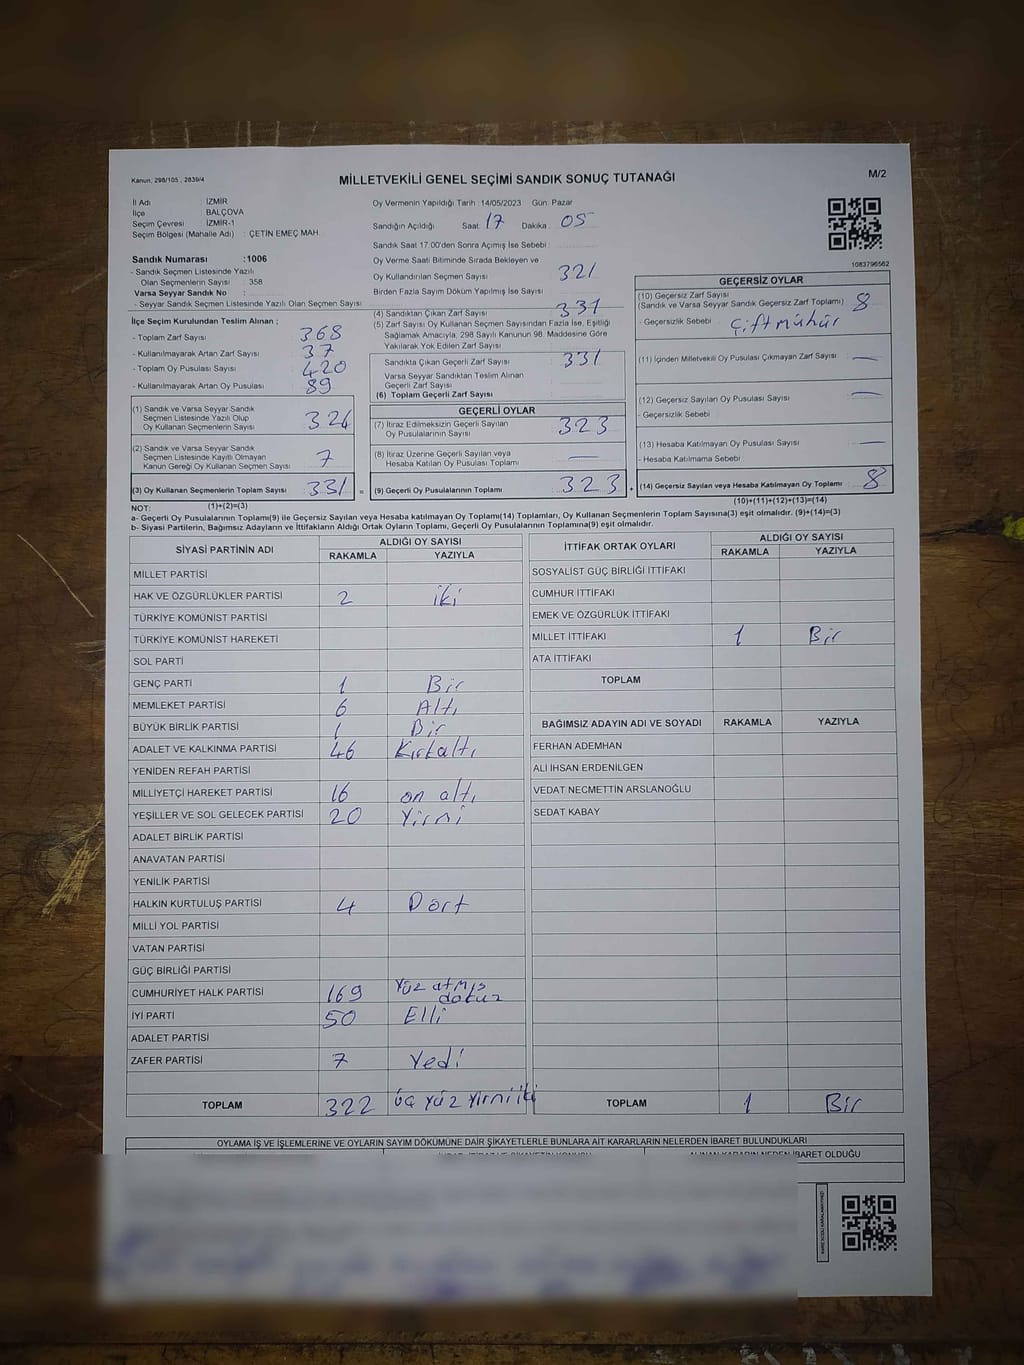 Kanun; 298/105 , 2839/4
MİLLETVEKİLİ GENEL SEÇİMİ SANDIK SONUÇ TUTANAĞI
M/2
İl Adı : İZMİR
İlçe : BALÇOVA
Seçim Çevresi : İZMİR-1
Seçim Bölgesi (Mahalle Adı) : ÇETİN EMEÇ MAH.
Sandık Numarası : 1006
- Sandık Seçmen Listesinde Yazılı
Olan Seçmenlerin Sayısı : 358
Varsa Seyyar Sandık No :
- Seyyar Sandık Seçmen Listesinde Yazılı Olan Seçmen Sayısı :
İlçe Seçim Kurulundan Teslim Alınan ;
- Toplam Zarf Sayısı : 368
- Kullanılmayarak Artan Zarf Sayısı : 37
- Toplam Oy Pusulası : 420
- Kullanılmayarak Artan Oy Pusulası : 89
(1) Sandık ve Varsa Seyyar Sandık
Seçmen Listesinde Yazılı Olup
Oy Kullanan Seçmenlerin Sayısı : 324
(2) Sandık ve Varsa Seyyar Sandık
Seçmen Listesinde Kayıtlı Olmayan
Kanun Gereği Oy Kullanan Seçmen Sayısı : 7
(3) Oy Kullanan Seçmenlerin Toplam Sayısı : 331 =
(1)+(2)=(3)
Oy Vermenin Yapıldığı Tarih : 14/05/2023 Gün: Pazar
Sandığın Açıldığı Saat: 17 Dakika : 05
Sandık Saat 17:00'den Sonra Açımış İse Sebebi :
Oy Verme Saati Bitiminde Sırada Bekleyen ve
Oy Kullandırılan Seçmen Sayısı : 321
Birden Fazla Sayım Döküm Yapılmış İse Sayısı :
(4) Sandıktan Çıkan Zarf Sayısı : 331
(5) Zarf Sayısı Oy Kullanan Seçmen Sayısından Fazla İse, Eşitliği
Sağlamak Amacıyla, 298 Sayılı Kanunun 98. Maddesine Göre
Yakılarak Yok Edilen Zarf Sayısı :
Sandıkta Çıkan Geçerli Zarf Sayısı : 331
Varsa Seyyar Sandıktan Teslim Alınan
Geçerli Zarf Sayısı :
(6) Toplam Geçerli Zarf Sayısı :
GEÇERLİ OYLAR
(7) İtiraz Edilmeksizin Geçerli Sayılan
Oy Pusulalarının Sayısı : 323
(8) İtiraz Üzerine Geçerli Sayılan veya
Hesaba Katılan Oy Pusulası Toplamı : —
(9) Geçerli Oy Pusulalarının Toplamı : 323 +
1083796562
GEÇERSİZ OYLAR
(10) Geçersiz Zarf Sayısı
(Sandık ve Varsa Seyyar Sandık Geçersiz Zarf Toplamı) : 8
- Geçersizlik Sebebi : Çift mühür
(11) İçinden Milletvekili Oy Pusulası Çıkmayan Zarf Sayısı : —
(12) Geçersiz Sayılan Oy Pusulası Sayısı : —
- Geçersizlik Sebebi :
(13) Hesaba Katılmayan Oy Pusulası Sayısı : —
- Hesaba Katılmama Sebebi :
(14) Geçersiz Sayılan veya Hesaba Katılmayan Oy Toplamı : 8
(10)+(11)+(12)+(13)=(14)
NOT:
a- Geçerli Oy Pusulalarının Toplamı(9) ile Geçersiz Sayılan veya Hesaba katılmayan Oy Toplamı(14) Toplamları, Oy Kullanan Seçmenlerin Toplam Sayısına(3) eşit olmalıdır. (9)+(14)=(3)
b- Siyasi Partilerin, Bağımsız Adayların ve İttifakların Aldığı Ortak Oyların Toplamı, Geçerli Oy Pusulalarının Toplamına(9) eşit olmalıdır.
SİYASİ PARTİNİN ADI ALDIĞI OY SAYISI
RAKAMLA YAZIYLA
MİLLET PARTİSİ
HAK VE ÖZGÜRLÜKLER PARTİSİ 2 iki
TÜRKİYE KOMÜNİST PARTİSİ
TÜRKİYE KOMÜNİST HAREKETİ
SOL PARTİ
GENÇ PARTİ 1 Bir
MEMLEKET PARTİSİ 6 Altı
BÜYÜK BİRLİK PARTİSİ 1 Bir
ADALET VE KALKINMA PARTİSİ 46 Kırkaltı
YENİDEN REFAH PARTİSİ
MİLLİYETÇİ HAREKET PARTİSİ 16 on altı
YEŞİLLER VE SOL GELECEK PARTİSİ 20 Yirmi
ADALET BİRLİK PARTİSİ
ANAVATAN PARTİSİ
YENİLİK PARTİSİ
HALKIN KURTULUŞ PARTİSİ 4 Dört
MİLLİ YOL PARTİSİ
VATAN PARTİSİ
GÜÇ BİRLİĞİ PARTİSİ
CUMHURİYET HALK PARTİSİ 169 Yüz atmış
dokuz
İYİ PARTİ 50 Elli
ADALET PARTİSİ
ZAFER PARTİSİ 7 Yedi
TOPLAM 322 üç yüz yirmi iki
İTTİFAK ORTAK OYLARI ALDIĞI OY SAYISI
RAKAMLA YAZIYLA
SOSYALİST GÜÇ BİRLİĞİ İTTİFAKI
CUMHUR İTTİFAKI
EMEK VE ÖZGÜRLÜK İTTİFAKI
MİLLET İTTİFAKI 1 Bir
ATA İTTİFAKI
TOPLAM
BAĞIMSIZ ADAYIN ADI VE SOYADI RAKAMLA YAZIYLA
FERHAN ADEMHAN
ALİ İHSAN ERDENİLGEN
VEDAT NECMETTİN ARSLANOĞLU
SEDAT KABAY
TOPLAM 1 Bir
OYLAMA İŞ VE İŞLEMLERİNE VE OYLARIN SAYIM DÖKÜMÜNE DAİR ŞİKAYETLERLE BUNLARA AİT KARARLARIN NELERDEN İBARET BULUNDUKLARI
ALINAN KARARIN NEDEN İBARET OLDUĞU